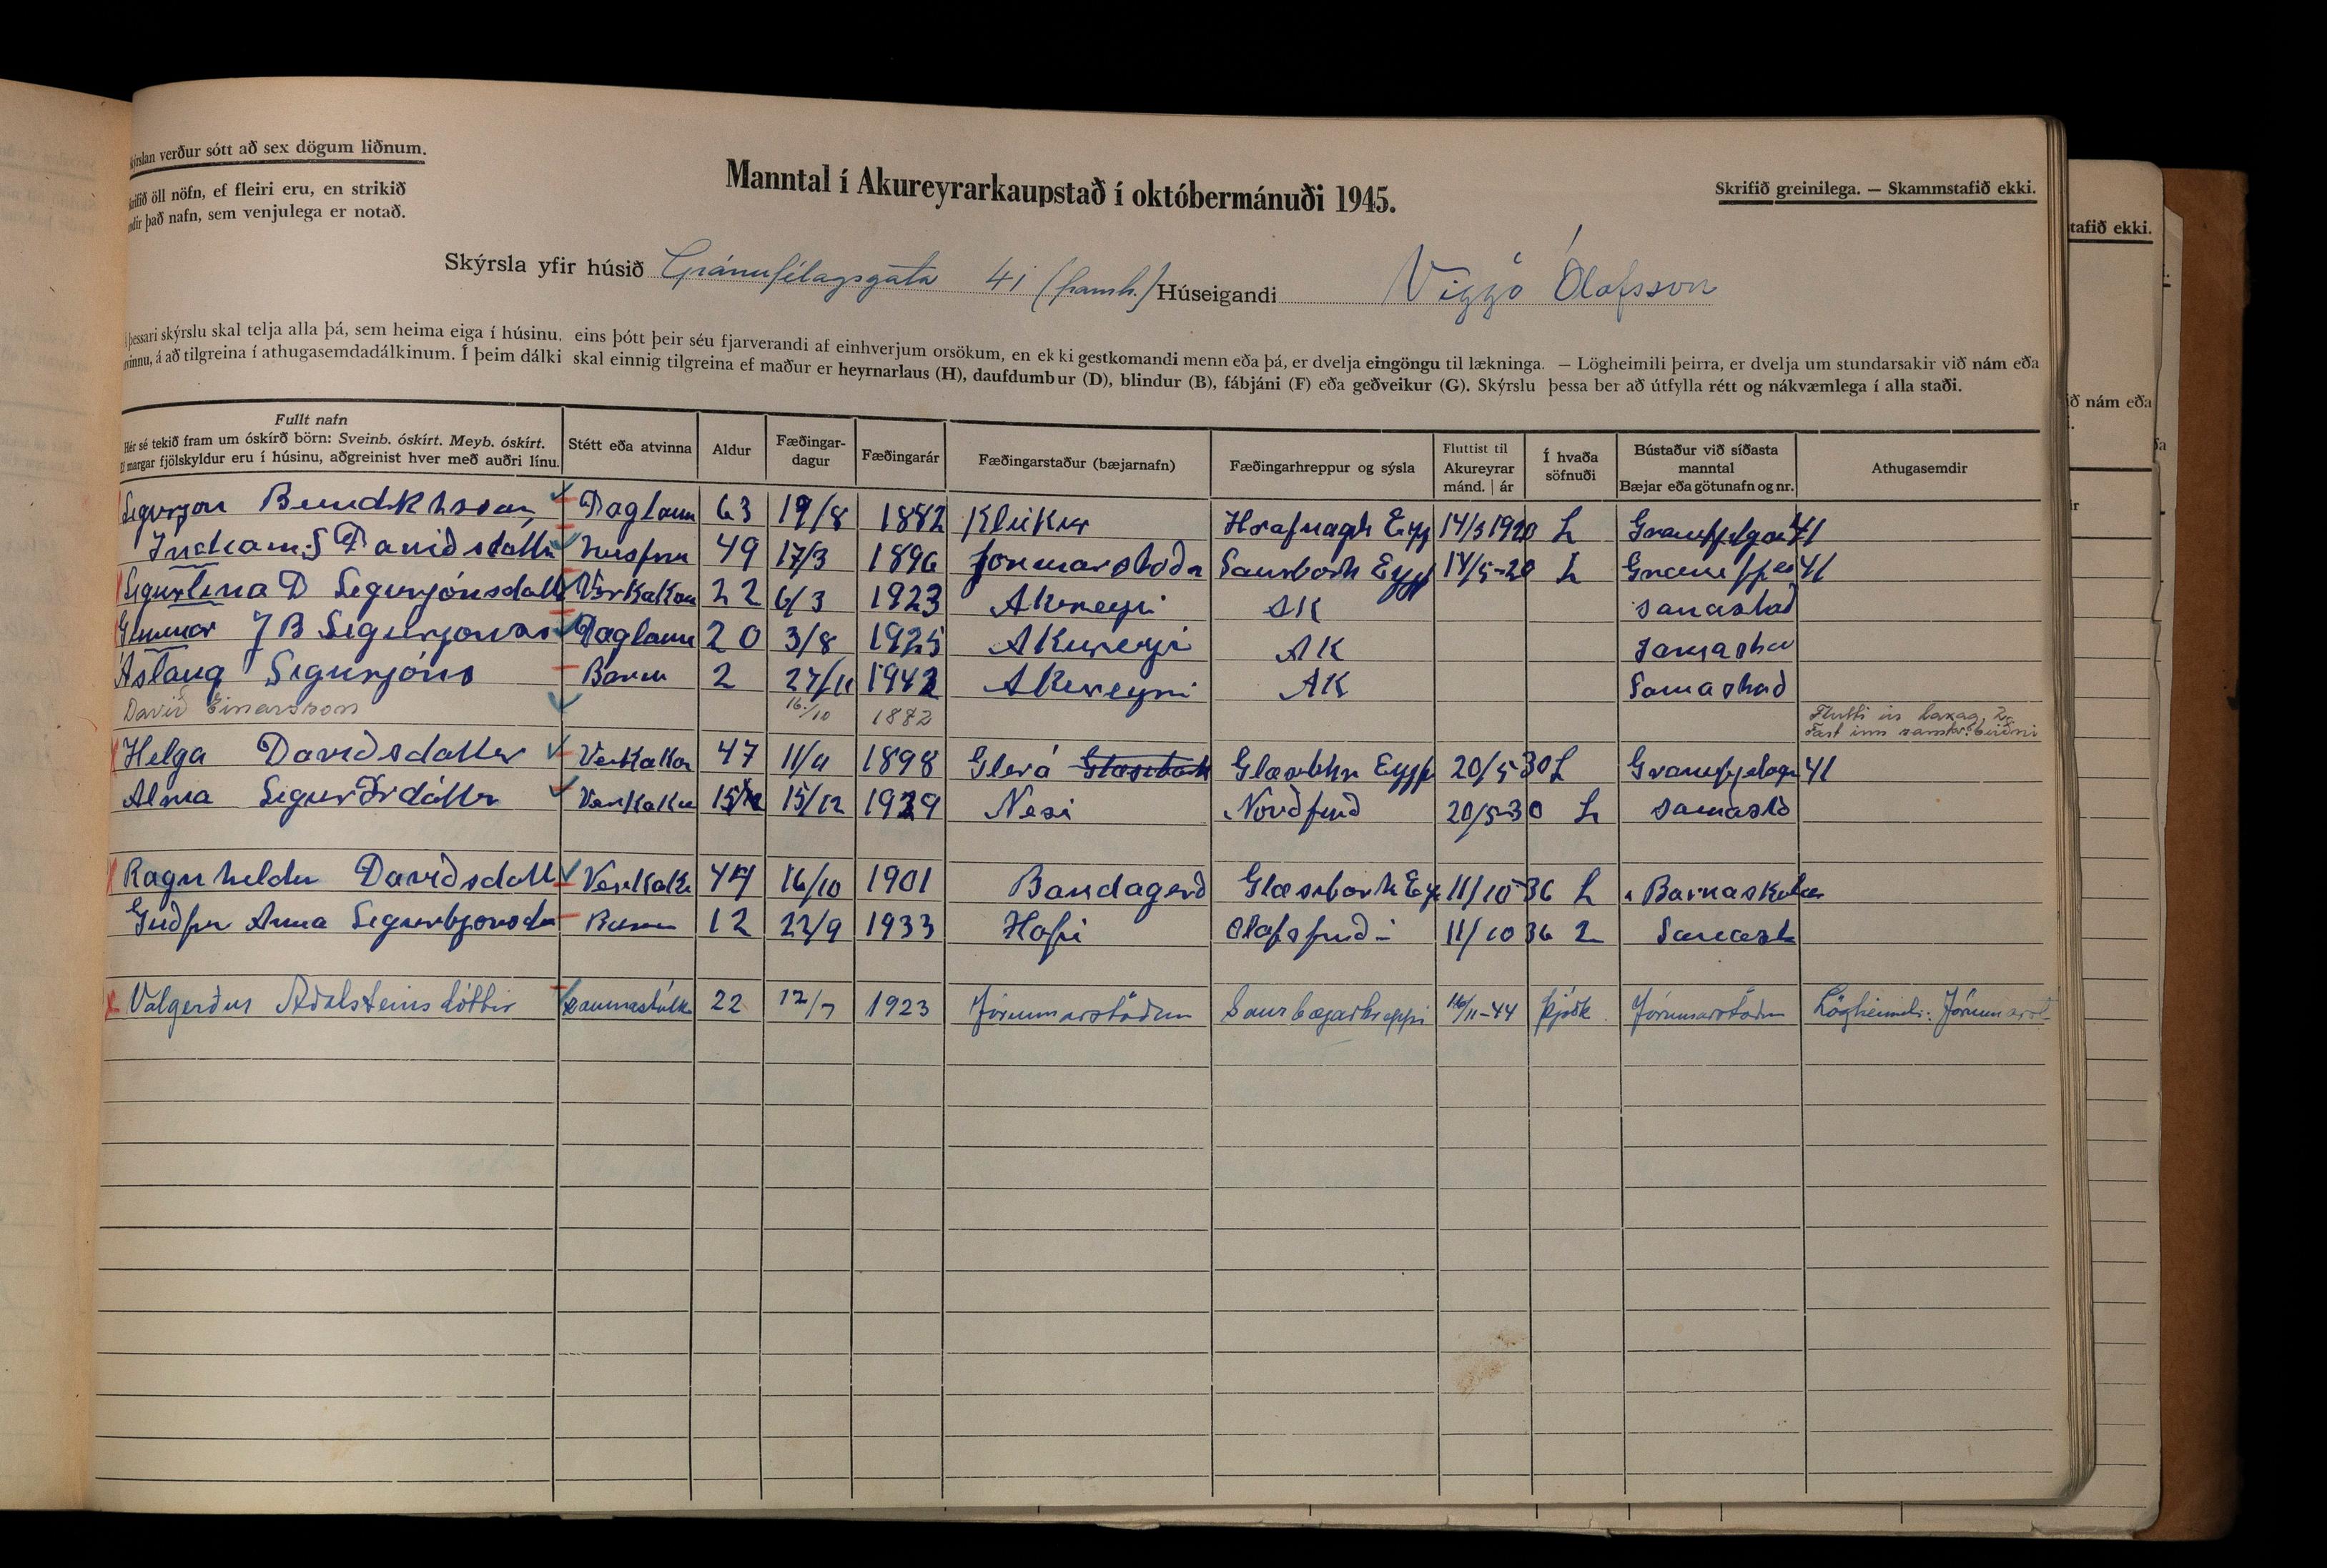 skýrslan verður sótt að sex dögum liðnum.
Skrifið öll nöfn, ef fleiri eru, en strikið
undir það nafn, sem venjulega er notað.
Manntal í Akureyrarkaupstað í októbermánuði 1945.
Skrifið greinilega. — Skammstafið ekki.
Skýrsla yfir húsið Gránufélagsgata 41 (framh.) Húseigandi Viggó Ólafsson
Í þessari skýrslu skal telja alla þá, sem heima eiga í húsinu, eins þótt þeir séu fjarverandi af einhverjum orsökum, en ekki gestkomandi menn eða þá, er dvelja eingöngu til lækninga. — Lögheimili þeirra, er dvelja um stundarsakir við nám eða
atvinnu, á að tilgreina í athugasemdadálkinum. Í þeim dálki skal einnig tilgreina ef maður er heyrnarlaus (H), daufdumbur (D), blindur (B), fábjáni (F) eða geðveikur (G). Skýrslu þessa ber að útfylla rétt og nákvæmlega í alla staði.
Fullt nafn
Hér sé tekið fram um óskírð börn: Sveinb. óskírt. Meyb. óskírt.
Ef margar fjölskyldur eru í húsinu, aðgreinist hver með auðri línu.
Stétt eða atvinna
Aldur
Fæðingar-
dagur
Fæðingarár
Fæðingarstaður (bæjarnafn)
Fæðingarhreppur og sýsla
Fluttist til
Akureyrar
mánd. | ár
Í hvaða
söfnuði
Bústaður við síðasta
manntal
Bæjar eða götunafn og nr.
Athugasemdir
Sigurjon Daglaun 63 19/8 1882 Klúkur Hrafnagh Eyj 14/5 1920 L 41
Davidsdottir 49 17/3 1896 Saurbæh Eyjf 14/5-20 L 41
Sigurlina D Sigurjónsdott Verkakon 22 6/3 1923 Akureyri AK samastað
Gunnar J B Sigurjonss Daglaun 20 3/8 1925 Akureyri AK
Áslaug Sigurjóns Barn 2 27/11 1942 Akureyri AK Samastað
Davíð Einarsson 16./10 1882 Flutti úr
Helga Davíðsdottir Verkakon 47 11/4 1898 Glerá Eyjf 20/5 30 L 41
Alma Sigurðrdóttir Verkako 15/12 1929 Nesi Norðfirð 20/5-30 L samasta
Ragnheidur Davíðsdott Verkako 44 16/10 1901 Bandagerð Eyj 11/10 36 L Barnaskolan
Anna Barn 12 22/9 1933 Hofi Olafsfirði 11/10 36 L
Valgerður Aðalsteinsdóttir saumastúlka 22 12/7 1923 Jórunnarstöðum Saurbæjarhreppi 16/11-44 þjóðk. Jórunnarstöðum Lögheimili: Jórunnarst.
tafið ekki.
ið nám eða